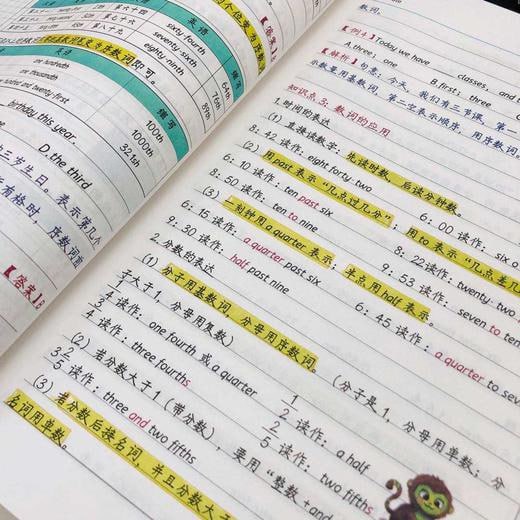 英语
缩写
第六十四
sixty fourth
64th
第七十六
seventy sixth
76th
第八十九
eighty ninth
89th
英语
缩写
one hundredth
100th
one thousandth
1000th
three hundred and twenty-first
321st
变序数词即可。
birthday this year.
D.the third
三岁生日。表示第几个
有格时，序数词前
【答案】B
数词。
【例4】Today we have
classes, and
A.three; one
B.first; three
【解析】句意：今天，我们有三节课，第一
示数量用基数词，第二空表示顺序，用序数词。
知识点3：数词的应用
1.时间的表达
(1) 直接读数字：先读时数，后读分钟数。
8：42 读作：eight forty-two
6：00 读作：six o
(2) 用past表示“几点过几分”；用to表示“几点差几
6：10 读作：ten past six
8：22读作：twenty-two
8：50 读作：ten to nine
9：53 读作：seven to ten
(3) 一刻钟用a quarter表示；半点用half表示。
6：15 读作：a quarter past six
6：45 读作：a quarter to seven
9：30 读作：half past nine
2.分数的表达
(1) 分子用基数词，分母用序数词。（分子是1，分母用单数；分
子大于1，分母用复数）
1/4 读作：one fourth 或 a quarter
1/2 读作：a half
3/4 读作：three fourths
2/5 读作：two fifths
(2) 若分数大于1（带分数），要用“整数+and
3 2/5 读作：three and two fifths
(3) 若分数后接名词，并且分数大于
名词用单数。